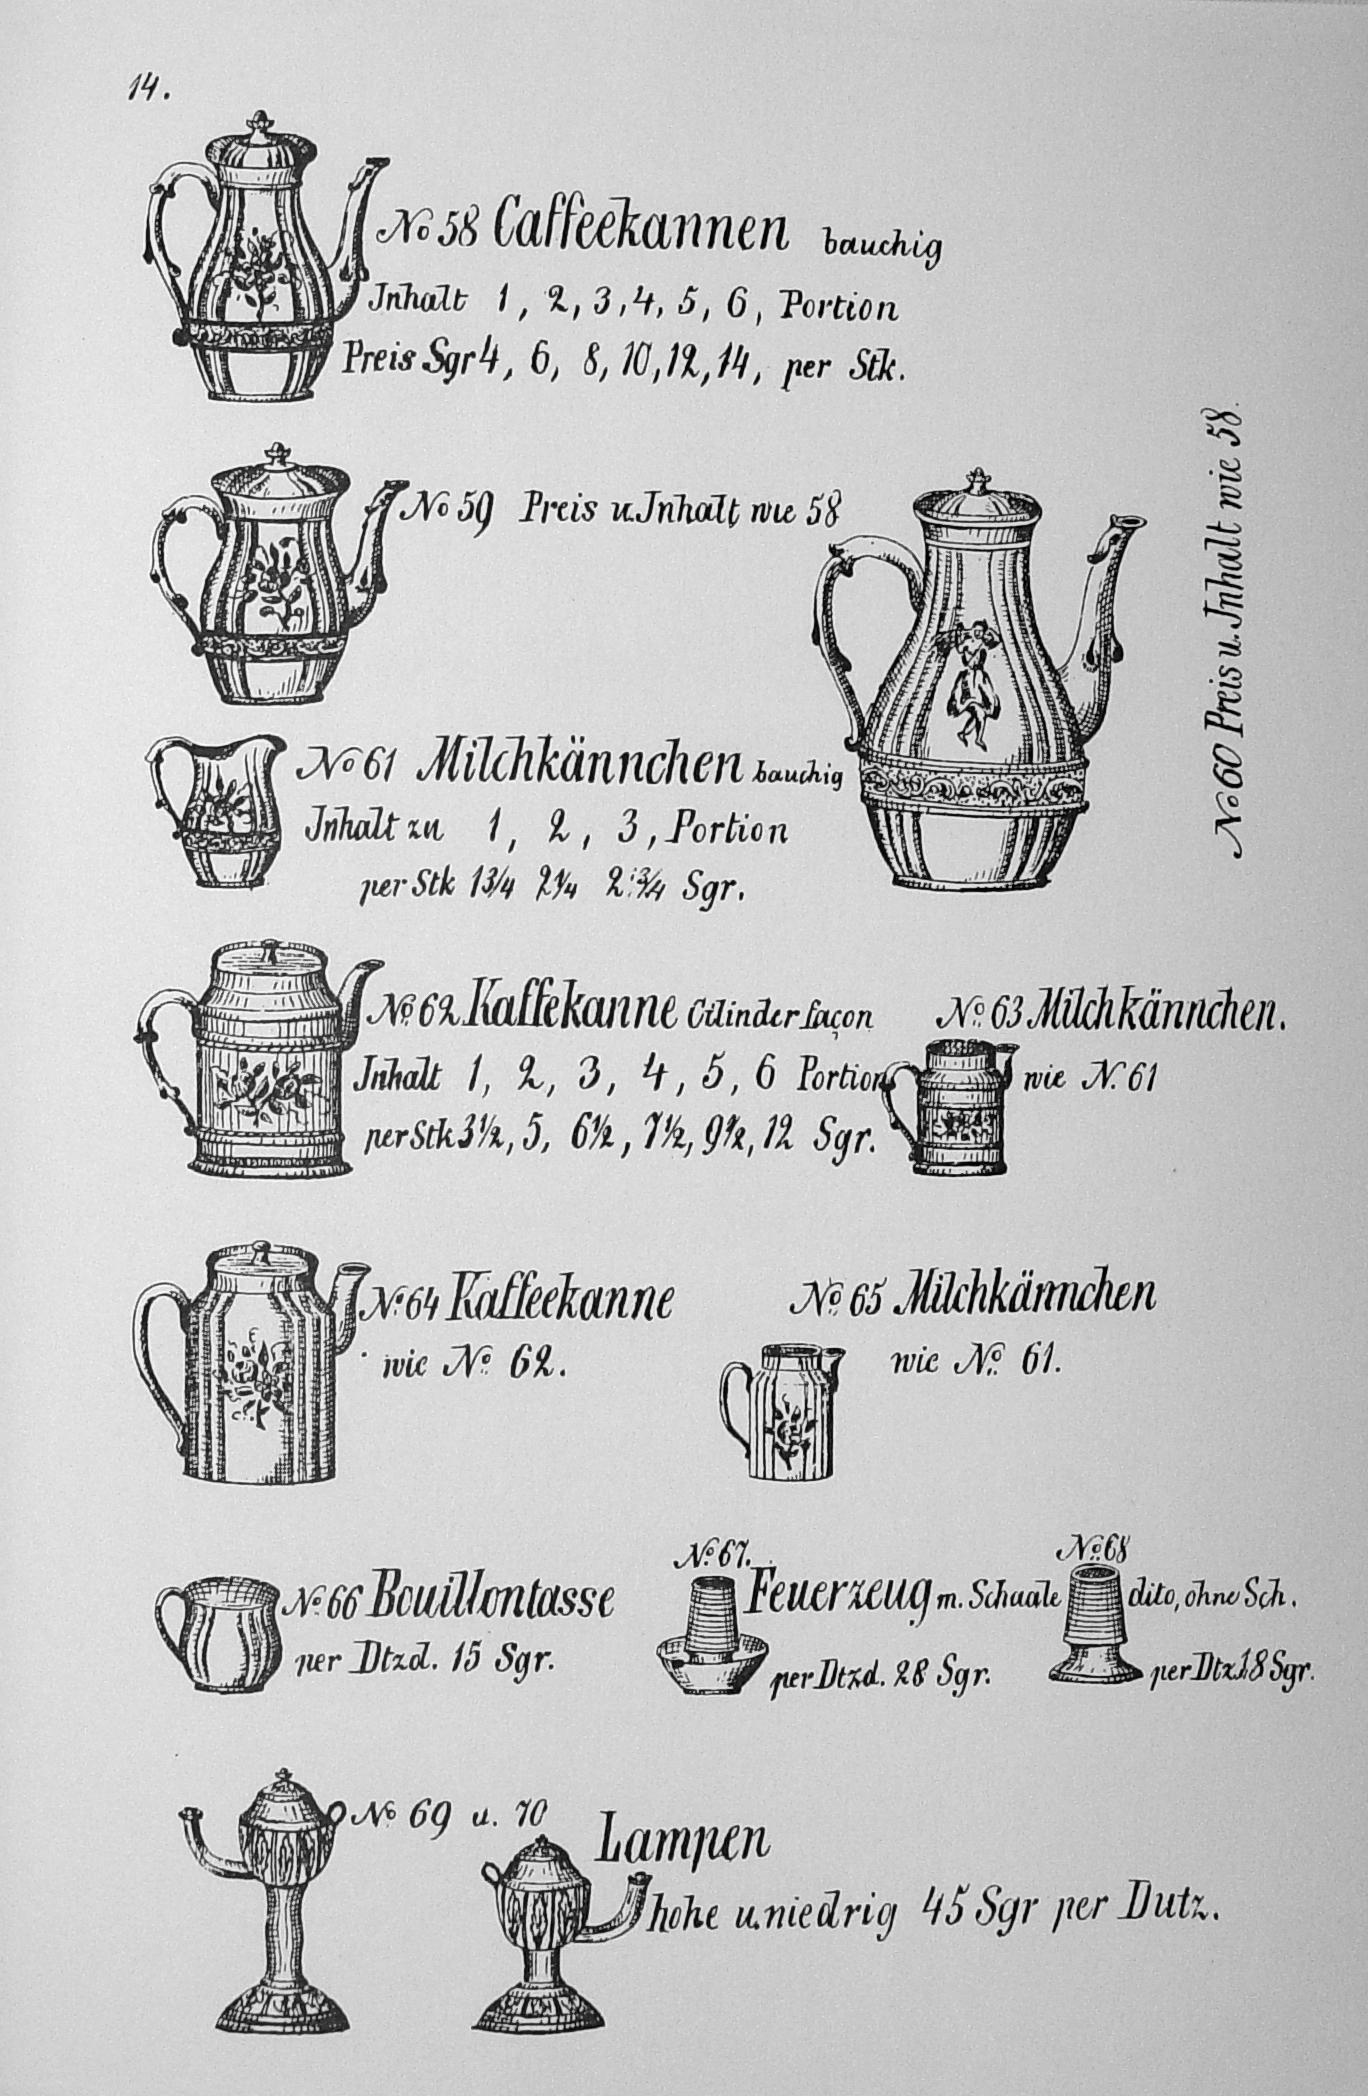 14.
No 58 Caffeekannen bauchig
Jnhalt 1, 2, 3, 4, 5, 6, Portion
Preis Sgr 4, 6, 8, 10, 12, 14, per Stk.
No 59 Preis u. Jnhalt wie 58
No 60 Preis u. Jnhalt wie 58.
No 61 Milchkännchen bauchig
Jnhalt zu 1, 2, 3, Portion
per Stk 1 3/4 2 1/4 2 3/4 Sgr.
No. 62 Kaffekanne Cilinder façon
Jnhalt 1, 2, 3, 4, 5, 6 Portion
per Stk 3 1/2, 5, 6 1/2, 7 1/2, 9 1/2, 12 Sgr.
No. 63 Milchkännchen.
wie N. 61
No. 64 Kaffeekanne
wie No. 62.
No. 65 Milchkännchen
wie No. 61.
No. 66 Bouillontasse
per Dtzd. 15 Sgr.
No. 67.
Feuerzeug m. Schaale
per Dtzd. 28 Sgr.
No. 68
dito, ohne Sch.
per Dtz. 18 Sgr.
No 69 u. 70
Lampen
hohe u. niedrig 45 Sgr per Dutz.